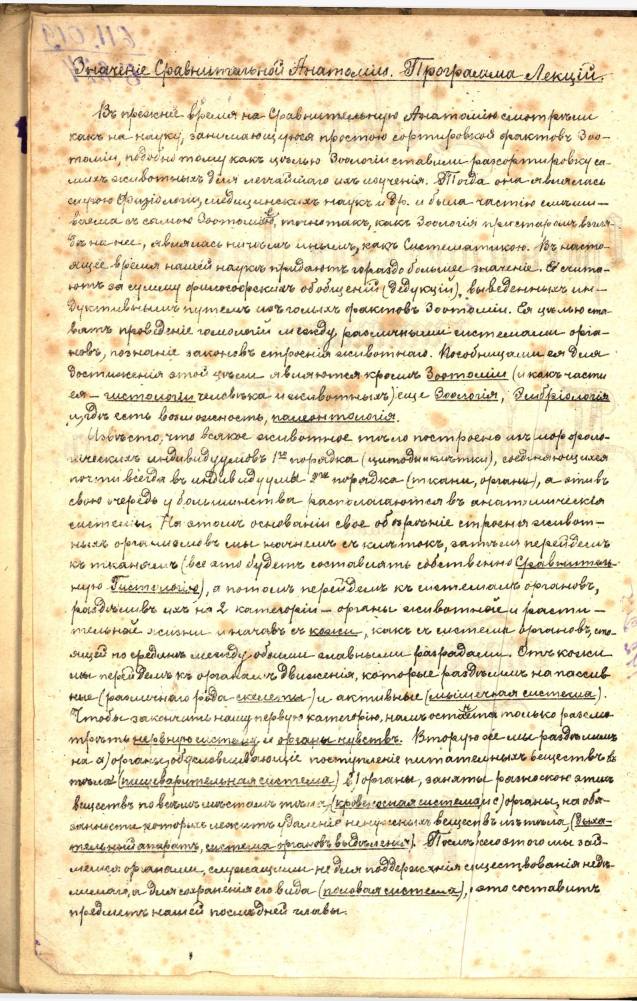 Значеніе Сравнительной Анатоміи. Программа Лекцій.
Въ прежнее время на Сравнительную Анатомію смотрѣли
какъ на науку, занимающуюся простою сортировкой фактовъ Зоо-
томіи, подобно тому какъ цѣлью Зоологіи ставили разсортировку са-
михъ животныхъ для легчайшаго ихъ изученія. Тогда она являлась
слугою Физіологіи, медицинскихъ наукъ и др. и была частію смѣши-
ваема съ самою Зоотоміею, точно такъ, какъ Зоологія при старомъ взгля-
дѣ на нее, являлась ничѣмъ инымъ, какъ Систематикою. Въ насто-
ящее время нашей наукѣ придаютъ гораздо большее значеніе. Её счита-
ютъ за сумму философскихъ обобщеній (дедукцій), выведенныхъ ин-
дуктивнымъ путемъ изъ голыхъ фактовъ Зоотоміи. Ея цѣлью ста-
вятъ проведеніе гомологій между различными системами орга-
новъ, познаніе законовъ строенія животнаго. Пособницами ея для
достиженія этой цѣли являются кромѣ Зоотоміи (и какъ части
ея – гистологіи человѣка и животныхъ) еще Зоологія, Эмбріологія
и, гдѣ есть возможность, палеонтологія.
Извѣсто, что всякое животное тѣло построено изъ морфоло-
гическихъ индивидуумовъ 1го порядка (цитоды и клѣтки), соединяющихся
почти всегда въ индивидуумы 2го порядка (ткани, органы), а эти въ
свою очередь у большинства располагаются въ анатомическія
системы. На этомъ основаніи свое обозрѣніе строенія живот-
ныхъ организмовъ мы начнемъ съ клѣтокъ, затѣмъ перейдемъ
къ тканямъ (все это будетъ составлять собственно Сравнитель-
ную Гистологію), а потомъ перейдемъ къ системамъ органовъ,
раздѣливъ ихъ на 2 категоріи – органы животной и расти-
тельной жизни и начавъ съ кожи, какъ съ системы органовъ, сто-
ящей по срединѣ между обоими главными разрядами. Отъ кожи
мы перейдемъ къ органамъ движенія, которые раздѣлимъ на пассив-
ные (различнаго рода скелеты) и активные (мышечная система).
Чтобы закончить нашу первую категорію, намъ останется только разсмо-
трѣть нервную систему и органы чувствъ. Вторую же мы раздѣлимъ
на а) органы, обусловливающіе поступленіе питательныхъ веществъ въ
тѣло (пищеварительная система) в) органы, заняты разноскою этихъ
веществъ по всѣмъ мѣстамъ тѣла (кровеносная система) и с) органы, на обя-
занности которыхъ лежитъ удаленіе ненужныхъ веществъ изъ тѣла (дыха-
тельный аппаратъ, система органовъ выдѣленія). Послѣ всего этого мы зай-
мемся органами, служащими не для поддержанія существованія недѣ-
лимаго, а для сохраненія его вида (половая система), это составитъ
предметъ нашей послѣдней главы.